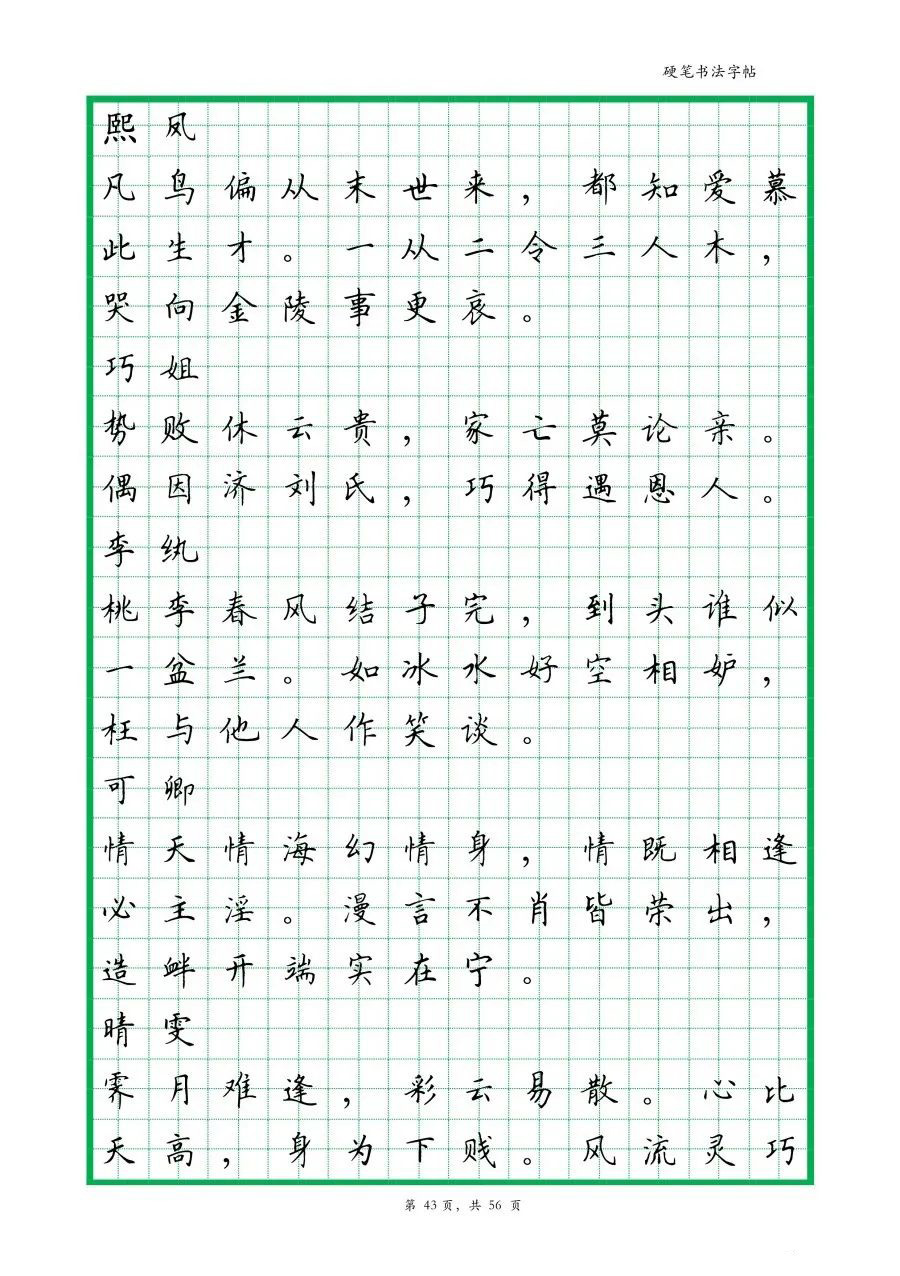 硬笔书法字帖
熙凤
凡鸟偏从末世来，都知爱慕
此生才。一从二令三人木，
哭向金陵事更哀。
巧姐
势败休云贵，家亡莫论亲。
偶因济刘氏，巧得遇恩人。
李纨
桃李春风结子完，到头谁似
一盆兰。如冰水好空相妒，
枉与他人作笑谈。
可卿
情天情海幻情身，情既相逢
必主淫。漫言不肖皆荣出，
造衅开端实在宁。
晴雯
霁月难逢，彩云易散。心比
天高，身为下贱。风流灵巧
第 43 页，共 56 页